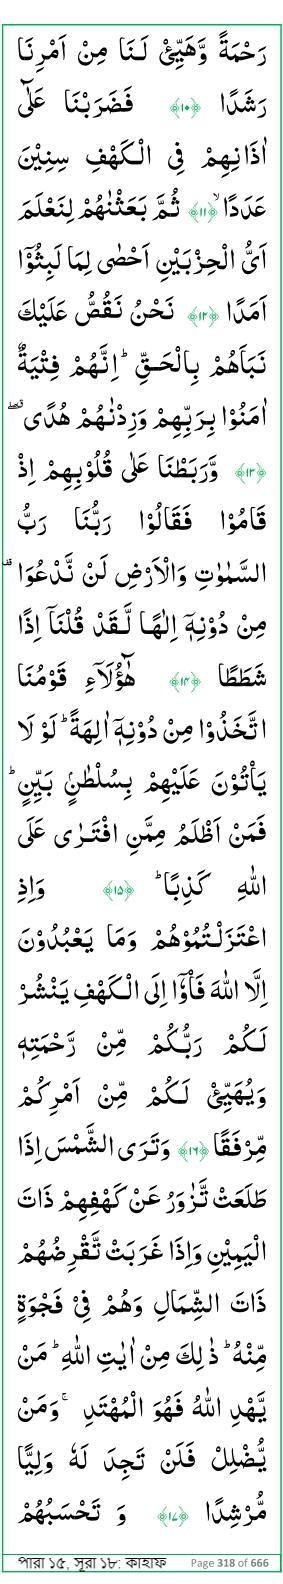 رَحْمَةً وَّهَيِّئْ لَنَا مِنْ اَمْرِنَا
رَشَدًا ﴿۱۰﴾ فَضَرَبْنَا عَلٰٓى
اٰذَانِهِمْ فِى الْكَهْفِ سِنِيْنَ
عَدَدًا ۙ﴿۱۱﴾ ثُمَّ بَعَثْنٰهُمْ لِنَعْلَمَ
اَىُّ الْحِزْبَيْنِ اَحْصٰى لِمَا لَبِثُوْٓا
اَمَدًا ﴿۱۲﴾ نَحْنُ نَقُصُّ عَلَيْكَ
نَبَاَهُمْ بِالْحَـقِّ‌ ؕ اِنَّهُمْ فِتْيَةٌ
اٰمَنُوْا بِرَبِّهِمْ وَزِدْنٰهُمْ هُدًى ۖ ۗ
﴿۱۳﴾ وَّرَبَطْنَا عَلٰى قُلُوْبِهِمْ اِذْ
قَامُوْا فَقَالُوْا رَبُّنَا رَبُّ
السَّمٰوٰتِ وَالْاَرْضِ لَنْ نَّدْعُوَا۟
مِنْ دُوْنِهٖۤ اِلٰهًـا لَّـقَدْ قُلْنَاۤ اِذًا
شَطَطًا ﴿۱۴﴾ هٰٓؤُلَاۤءِ قَوْمُنَا
اتَّخَذُوْا مِنْ دُوْنِهٖۤ اٰلِهَةً‌ ؕ لَوْ لَا
يَاْتُوْنَ عَلَيْهِمْ بِسُلْطٰنٍۢ بَيِّنٍ‌ ؕ
فَمَنْ اَظْلَمُ مِمَّنِ افْتَـرٰى عَلَى
اللّٰهِ كَذِبًا ؕ ﴿۱۵﴾ وَاِذِ
اعْتَزَلْـتُمُوْهُمْ وَمَا يَعْبُدُوْنَ
اِلَّا اللّٰهَ فَاْوٗۤا اِلَى الْـكَهْفِ يَنْشُرْ
لَـكُمْ رَبُّكُمْ مِّنْ رَّحْمَتِهٖ
وَيُهَيِّئْ لَـكُمْ مِّنْ اَمْرِكُمْ
مِّرْفَقًا ﴿۱۶﴾ وَتَرَى الشَّمْسَ اِذَا
طَلَعَتْ تَّزٰوَرُ عَنْ كَهْفِهِمْ ذَاتَ
الْيَمِيْنِ وَاِذَا غَرَبَتْ تَّقْرِضُهُمْ
ذَاتَ الشِّمَالِ وَهُمْ فِىْ فَجْوَةٍ
مِّنْهُ‌ ؕ ذٰلِكَ مِنْ اٰيٰتِ اللّٰهِ‌ ؕ مَنْ
يَّهْدِ اللّٰهُ فَهُوَ الْمُهْتَدِ ‌ۚ وَمَنْ
يُّضْلِلْ فَلَنْ تَجِدَ لَهٗ وَلِيًّا
مُّرْشِدًا ﴿۱۷﴾ وَ تَحْسَبُهُمْ
পারা ১৫, সূরা ১৮: কাহাফ Page 318 of 666